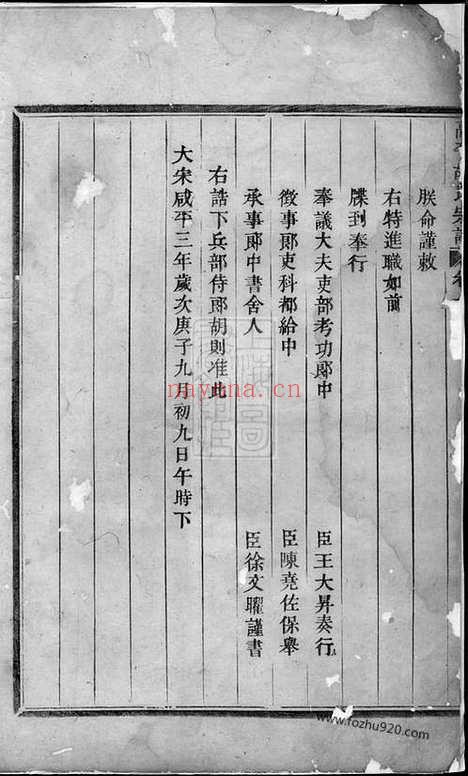 朕命謹敕
右特進職如前
牒到奉行
奉議大夫吏部考功郎中　臣王大昇奏行
徵事郎吏科都給中　臣陳堯佐保舉
承事郎中書舍人　臣徐文曜謹書
右誥下兵部侍郎胡則准此
大宋咸平三年歲次庚子九月初九日午時下
nayona.cn
www.fozhu920.com